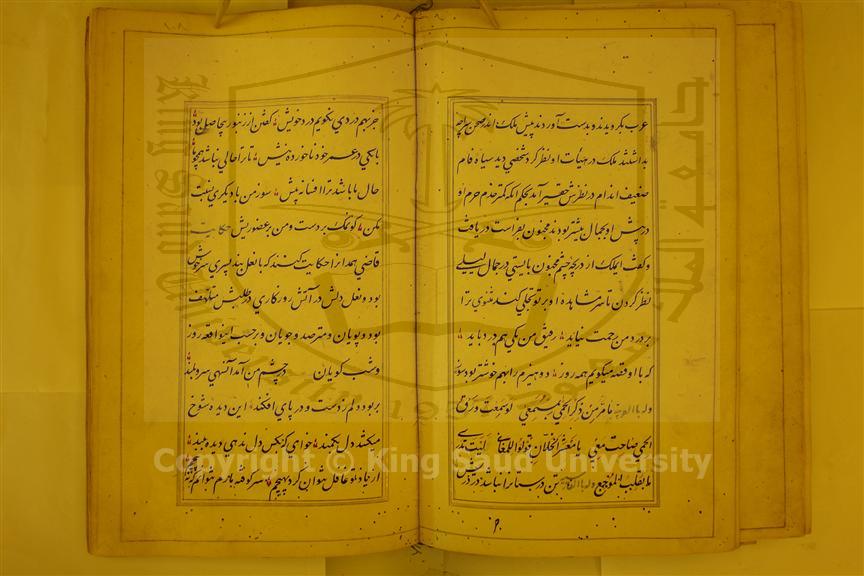 عرب بگردیدند و بدست آوردند پیش ملک اندر صحن سراچه
بداشتند ملک در هیأت او نظر کرد شخصی دید سیاه فام
ضعیف اندام در نظرش حقیر آمد بحکم آنکه کمترین خدم حرم او
در پیش او بجمال بیشتر بودند مجنون بفراست دریافت
و گفت ای ملک از دریچه چشم مجنون بایستی در جمال لیلی
نظر کردن تا سر مشاهده او بر تو تجلی کند مثنوی ترا
بر درد من رحمت نیاید رفیق من یکی هم درد باید
که با او قصه میگویم همه روز دو هیزم را بهم خوشتر بود سوز
ما مر من ذکر الحمی بمسمعی لو سمعت ورق
الحمی صاحت معی یا معشر الخلان قولوا للمعافی لست تدری
ما بقلب الموجع تن درستانرا نباشد درد ریش
جز بهم دردی نگویم درد خویش گفتن از زنبور بیحاصل بود
با یکی در عمر خود ناخورده نیش تا ترا حالی نباشد همچو ما
حال ما باشد ترا افسانه پیش سوز من با دیگری نسبت
مکن او نمک بر دست و من بر عضو ریش حکایت
قاضی همدانرا حکایت کنند که با نعلبند پسری سرخوش
بود و نعل دلش در آتش روزگاری در طلبش متلهف
بود و پویان و مترصد و جویان و بر حسب واقعه
و گویان در چشم من آمد آن سهی سرو بلند
بربود دلم ز دست و در پای افکند این دیده شوخ
میکشد دل بکمند خواهی که بکس دل ندهی دیده ببند
از یاد تو غافل نتوان کرد بهیچم سر کوفته مارم نتوانم که
King Saud University
جامعة الملك سعود
1957
Copyright © King Saud University